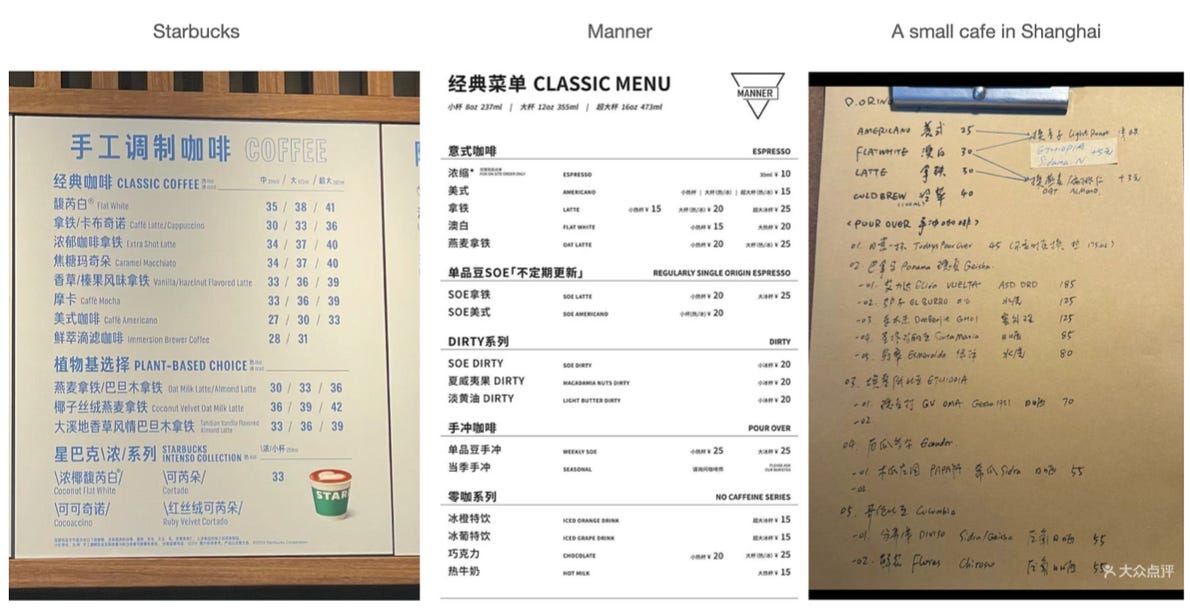 Starbucks
手工调制咖啡 COFFEE
经典咖啡 CLASSIC COFFEE 中 / 大 / 超大
馥芮白® Flat White 35 / 38 / 41
拿铁/卡布奇诺 Caffè Latte/Cappuccino 30 / 33 / 36
浓郁咖啡拿铁 Extra Shot Latte 34 / 37 / 40
焦糖玛奇朵 Caramel Macchiato 34 / 37 / 40
香草/榛果风味拿铁 Vanilla/Hazelnut Flavored Latte 33 / 36 / 39
摩卡 Caffè Mocha 33 / 36 / 39
美式咖啡 Caffè Americano 27 / 30 / 33
鲜萃滴滤咖啡 Immersion Brewer Coffee 28 / 31
植物基选择 PLANT-BASED CHOICE
燕麦拿铁/巴旦木拿铁 Oat Milk Latte/Almond Latte 30 / 33 / 36
椰子丝绒燕麦拿铁 Coconut Velvet Oat Milk Latte 36 / 39 / 42
大溪地香草风情巴旦木拿铁 Tahitian Vanilla Flavored Almond Latte 33 / 36 / 39
星巴克\浓/系列 STARBUCKS INTENSO COLLECTION \浓/小杯
\浓椰馥芮白/ \可芮朵/ 33
Coconut Flat White Cortado
\可可奇浓/ \红丝绒可芮朵/
Cocoaccino Ruby Velvet Cortado
STAR
Manner
经典菜单 CLASSIC MENU
MANNER
小杯 8oz 237ml | 大杯 12oz 355ml | 超大杯 16oz 473ml
意式咖啡 ESPRESSO
浓缩* FOR ON SITE ORDER ONLY ESPRESSO 30ml ¥ 10
美式 AMERICANO 小热杯 | 大杯(热/冰) | 超大冰杯 ¥ 15
拿铁 LATTE 小热杯 ¥ 15 大杯(热/冰) ¥ 20 超大冰杯 ¥ 25
澳白 FLAT WHITE 小热杯 ¥ 15 大热杯 ¥ 20
燕麦拿铁 OAT LATTE 小热杯 ¥ 20 大杯(热/冰) ¥ 25
单品豆SOE「不定期更新」 REGULARLY SINGLE ORIGIN ESPRESSO
SOE拿铁 SOE LATTE 小热杯 ¥ 20 大冰杯 ¥ 25
SOE美式 SOE AMERICANO 小杯(热/冰) ¥ 20
DIRTY系列 DIRTY
SOE DIRTY SOE DIRTY 小冰杯 ¥ 20
夏威夷果 DIRTY MACADAMIA NUTS DIRTY 小冰杯 ¥ 20
淡黄油 DIRTY LIGHT BUTTER DIRTY 小冰杯 ¥ 20
手冲咖啡 POUR OVER
单品豆手冲 WEEKLY SOE 小热杯 ¥ 25 大冰杯 ¥ 25
当季手冲 SEASONAL 请询问咖啡师 PLEASE ASK OUR BARISTAS
零咖系列 NO CAFFEINE SERIES
冰橙特饮 ICED ORANGE DRINK 大冰杯 ¥ 15
冰葡特饮 ICED GRAPE DRINK 大冰杯 ¥ 15
巧克力 CHOCOLATE 小热杯 ¥ 20 大杯(热/冰) ¥ 25
热牛奶 HOT MILK 大热杯 ¥ 15
A small cafe in Shanghai
AMERICANO 美式 25
FLATWHITE 澳白 30
LATTE 拿铁 30
COLDBREW 冷萃 40
Light Roast
ETHIOPIA
Sidama N +5元
OAT ALMOND +3元
<POUR OVER 手冲咖啡>
01. Todays Pour Over 45
02. 巴拿马 Panama 瑰夏 Geisha
-01. Elida VUELTA ASD DRD 185
-02. EL BURRO 水洗 125
-03. 125
-04. 日晒 85
-05. Esmeralda 水洗 80
03. 埃塞俄比亚 ETHIOPIA
-01. 日晒 70
-02.
04. 厄瓜多尔 Ecuador
-01. Sidra 日晒 55
-02.
05. 哥伦比亚 Columbia
-01. Diviso Sidra/Geisha 厌氧日晒 55
-02. Flores Chiroso 厌氧日晒 55
大众点评